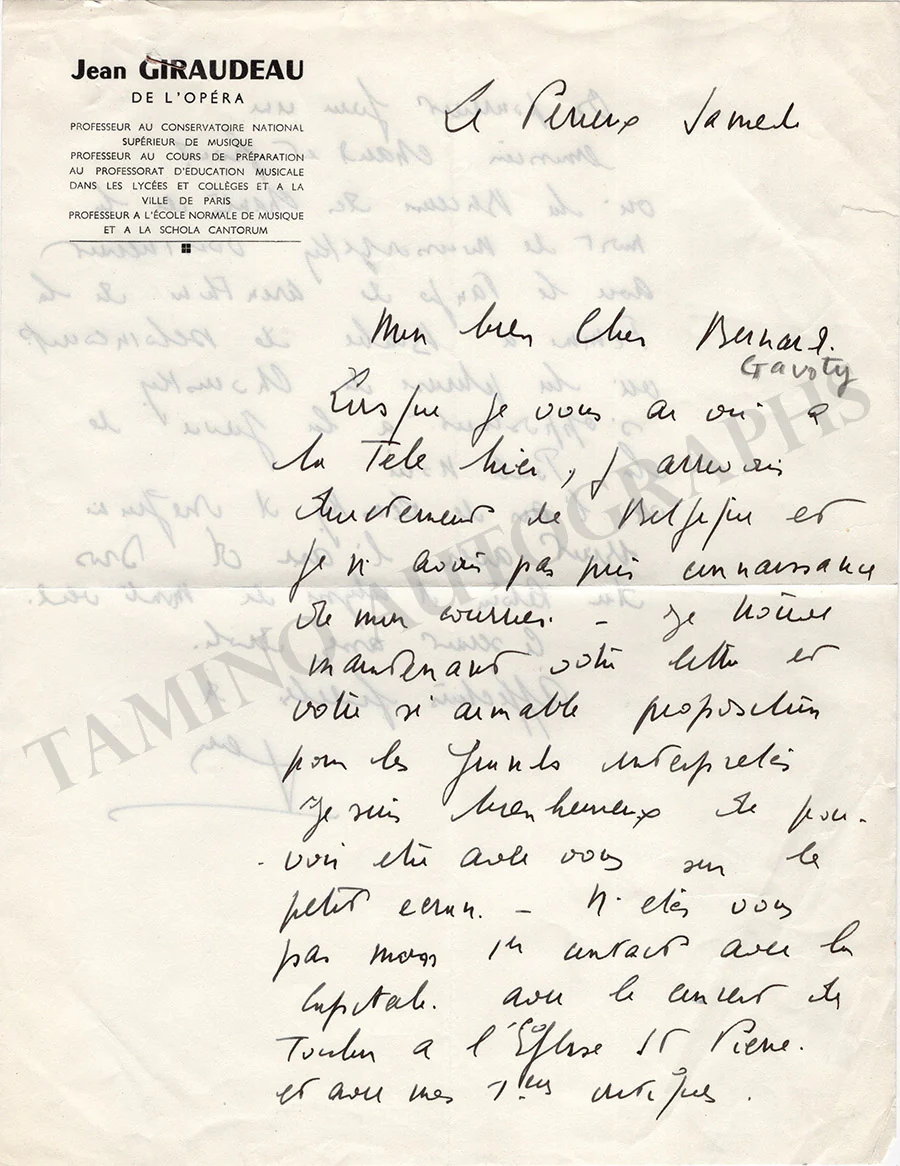 Jean GIRAUDEAU
DE L'OPÉRA
PROFESSEUR AU CONSERVATOIRE NATIONAL
SUPÉRIEUR DE MUSIQUE
PROFESSEUR AU COURS DE PRÉPARATION
AU PROFESSORAT D'EDUCATION MUSICALE
DANS LES LYCÉES ET COLLÈGES ET A LA
VILLE DE PARIS
PROFESSEUR A L'ÉCOLE NORMALE DE MUSIQUE
ET A LA SCHOLA CANTORUM
Le Perreux Samedi
Mon bien Cher Bernard.
Gavoty
Lorsque je vous ai vu à
la Télé hier, j'arrivais
directement de Belgique et
je n'avais pas pris connaissance
de mon courrier. - Je trouve
maintenant votre lettre et
votre si aimable proposition
pour les Grands interprètes
Je suis bien heureux de pou-
voir etre avec vous sur le
petit ecran. - N'etes vous
pas mon 1er contact avec la
Capitale. avec le concert de
Toulon a l'Eglise St Pierre.
et avec mes 1eres critiques.
TAMINO AUTOGRAPHS